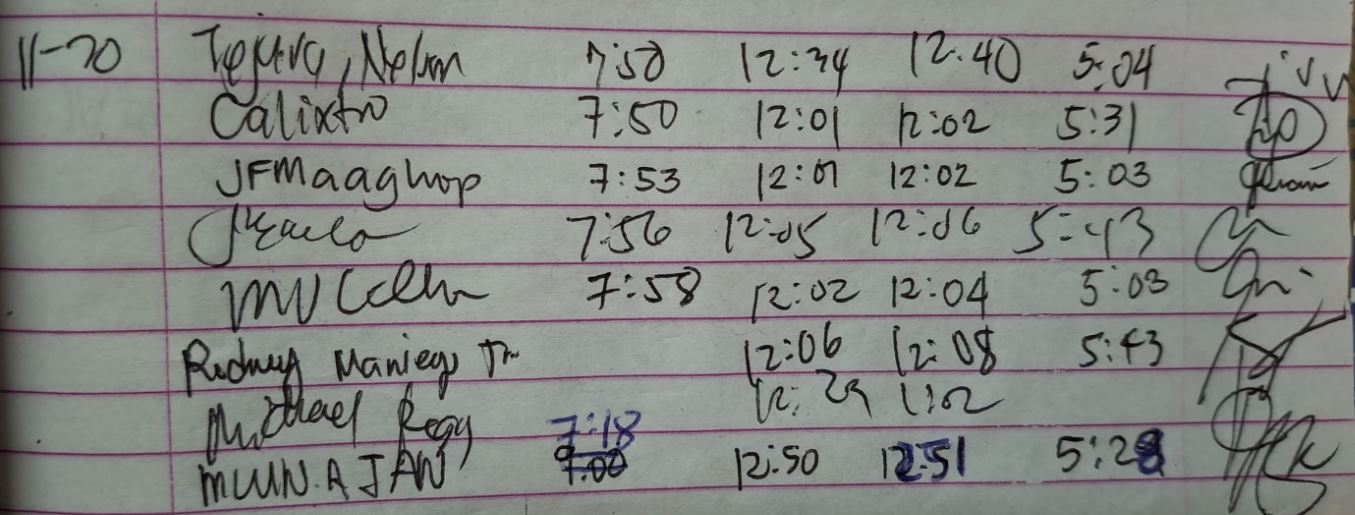 11-20 Nelson 7:50 12:34 12:40 5:04
Calixtro 7:50 12:01 12:02 5:31
JFMaaghop 7:53 12:01 12:02 5:03
7:56 12:05 12:06 5:43
MV 7:58 12:02 12:04 5:03
Rodney Maniego Jr 12:06 12:08 5:43
Michael 7:18 12:29 1:02
MUUN.AJAN 12:50 12:51 5:28